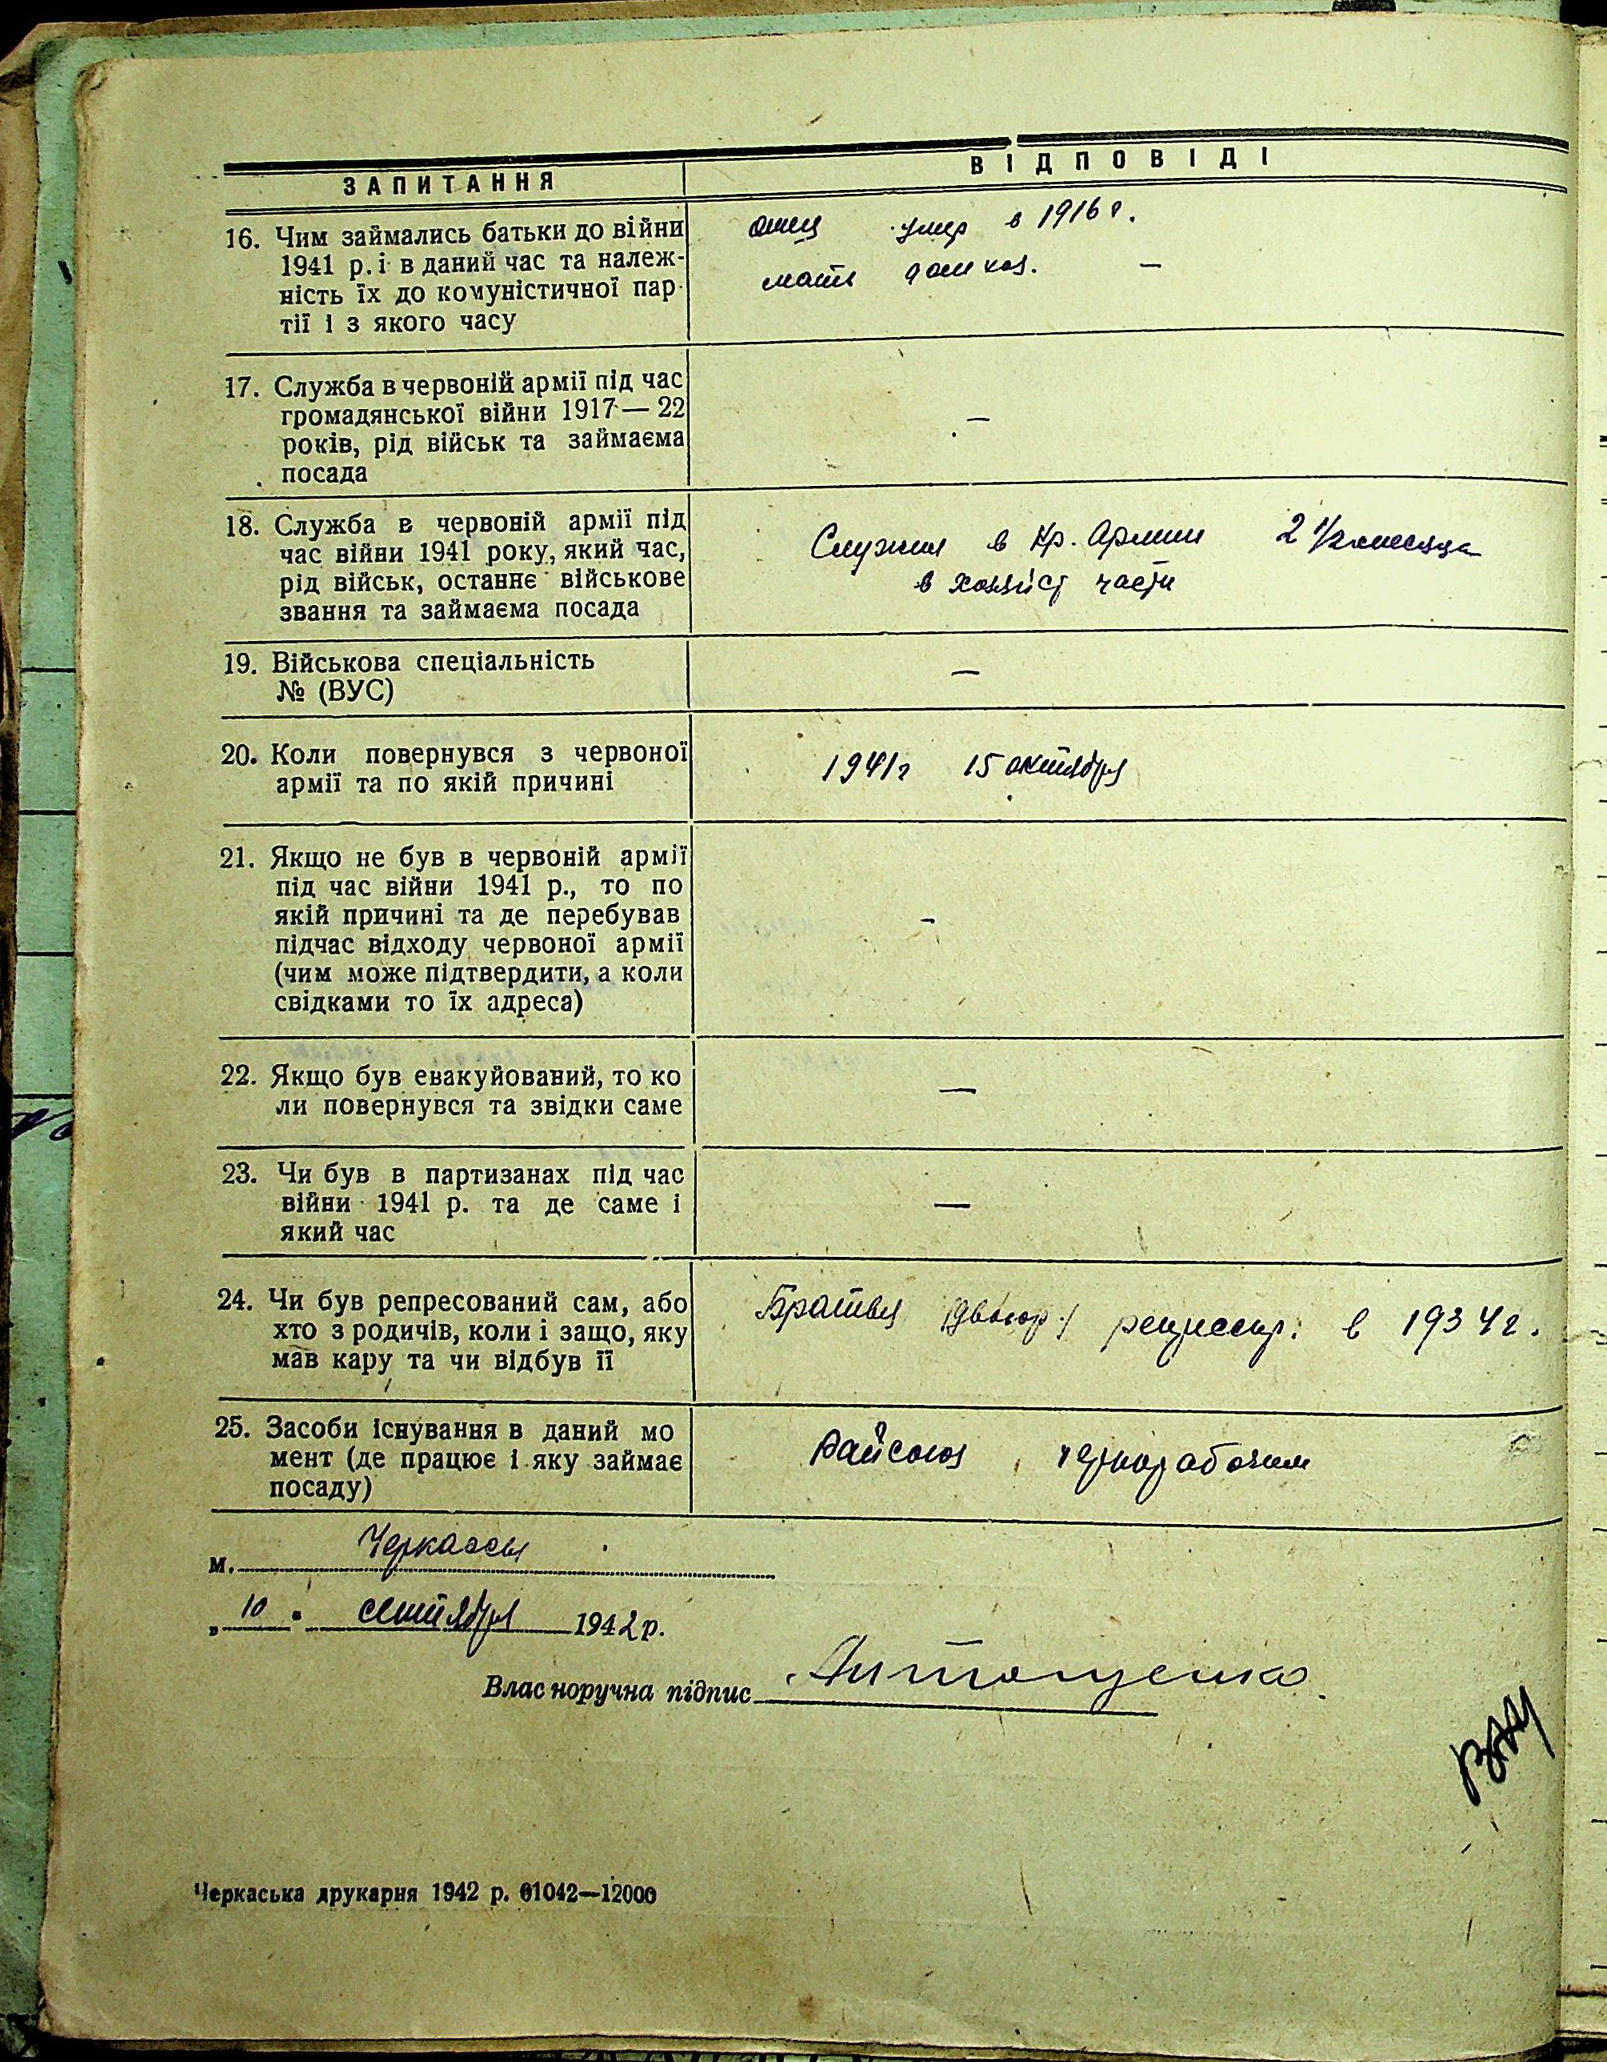 ЗАПИТАННЯ
ВІДПОВІДІ
16. Чим займались батьки до війни
1941 р. і в даний час та належ-
ність їх до комуністичної пар-
тії і з якого часу
отец умер в 1916 г.
мать домхоз. —
17. Служба в червоній армії під час
громадянської війни 1917 — 22
років, рід військ та займаєма
посада
—
18. Служба в червоній армії під
час війни 1941 року, який час,
рід військ, останнє військове
звання та займаєма посада
Служил в Кр. Армии 2 1/2 месяца
в хозяйст части
19. Військова спеціальність
№ (ВУС)
—
20. Коли повернувся з червоної
армії та по якій причині
1941 г 15 октября
21. Якщо не був в червоній армії
під час війни 1941 р., то по
якій причині та де перебував
підчас відходу червоної армії
(чим може підтвердити, а коли
свідками то їх адреса)
-
22. Якщо був евакуйований, то ко
ли повернувся та звідки саме
—
23. Чи був в партизанах під час
війни 1941 р. та де саме і
який час
—
24. Чи був репресований сам, або
хто з родичів, коли і защо, яку
мав кару та чи відбув її
Братья (двоюр.) репрессир. в 1934 г.
25. Засоби існування в даний мо
мент (де працює і яку займає
посаду)
Райсоюз чернорабочим
м. Черкассы
„10" сентября 1942 р.
Власноручна підпис Антощенко
Черкаська друкарня 1942 р. 01042—12000